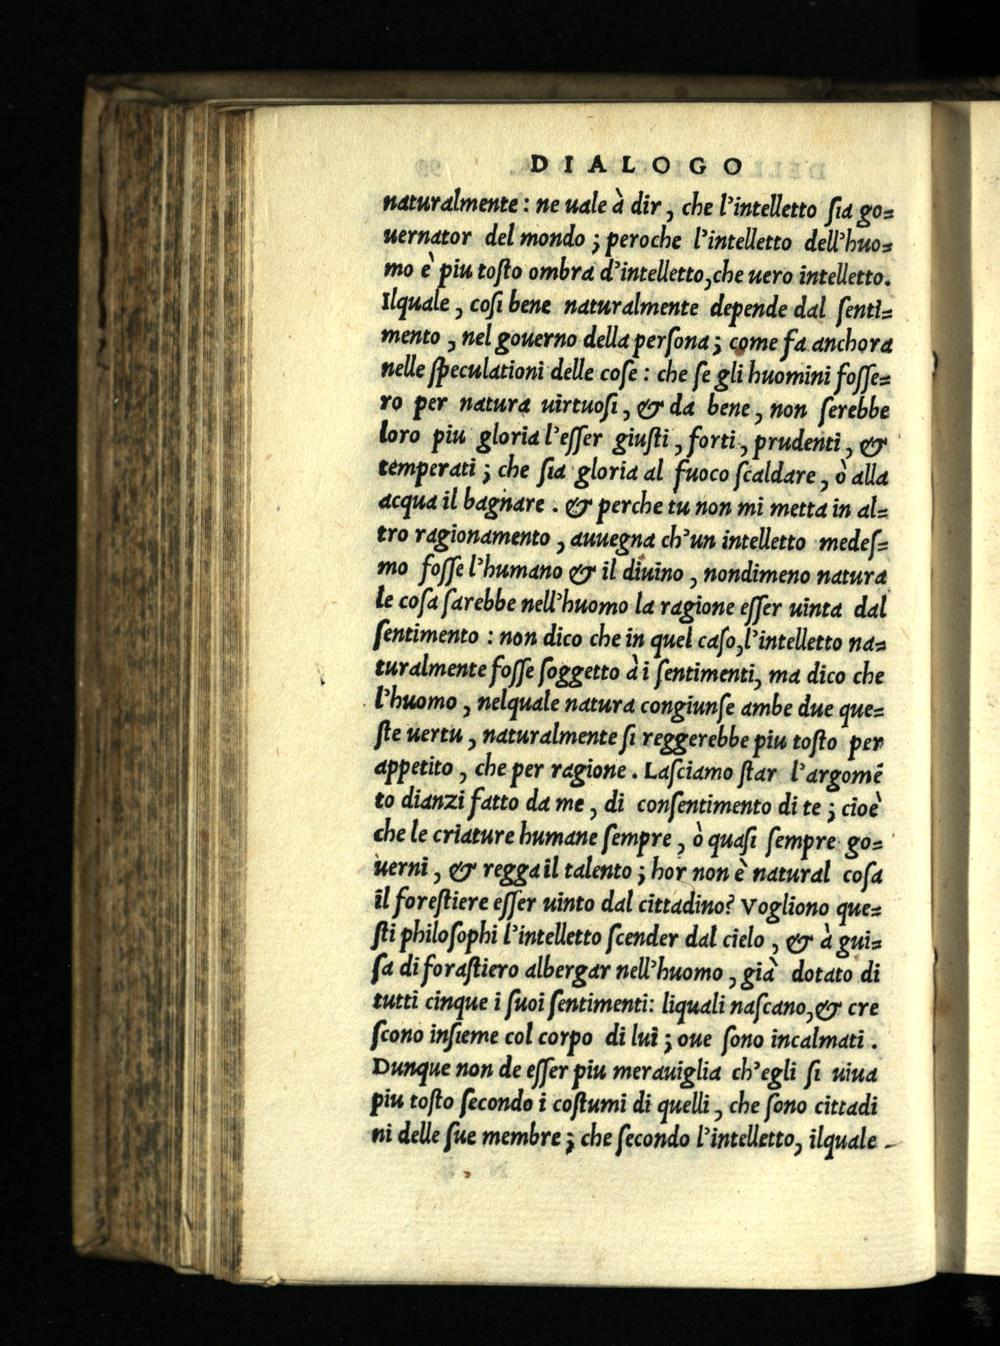 DIALOGO
naturalmente : ne uale à dir, che l'intelletto ſia go=
uernator del mondo ; peroche l'intelletto dell'huo=
mo è piu toſto ombra d'intelletto, che uero intelletto.
Ilquale, coſi bene naturalmente depende dal ſenti=
mento, nel gouerno della perſona ; come fa anchora
nelle ſpeculationi delle coſe : che ſe gli huomini foſſe=
ro per natura uirtuoſi, & da bene, non ſerebbe
loro piu gloria l'eſſer giuſti, forti, prudenti, &
temperati ; che ſia gloria al fuoco ſcaldare, ò alla
acqua il bagnare. & perche tu non mi metta in al=
tro ragionamento, auuegna ch'un intelletto medeſ=
mo foſſe l'humano & il diuino, nondimeno natura
le coſa ſarebbe nell'huomo la ragione eſſer uinta dal
ſentimento : non dico che in quel caſo, l'intelletto na=
turalmente foſſe ſoggetto à i ſentimenti, ma dico che
l'huomo, nelquale natura congiunſe ambe due que=
ſte uertu, naturalmente ſi reggerebbe piu toſto per
appetito, che per ragione. Laſciamo ſtar l'argomē
to dianzi fatto da me, di conſentimento di te ; cioè
che le criature humane ſempre, ò quaſi ſempre go=
uerni, & regga il talento ; hor non è natural coſa
il foreſtiere eſſer uinto dal cittadino? Vogliono que=
ſti philoſophi l'intelletto ſcender dal cielo, & à gui=
ſa di foraſtiero albergar nell'huomo, già dotato di
tutti cinque i ſuoi ſentimenti: liquali naſcano, & cre
ſcono inſieme col corpo di lui ; oue ſono incalmati.
Dunque non de eſſer piu merauiglia ch'egli ſi uiua
piu toſto ſecondo i coſtumi di quelli, che ſono cittadi
ni delle ſue membre ; che ſecondo l'intelletto, ilquale